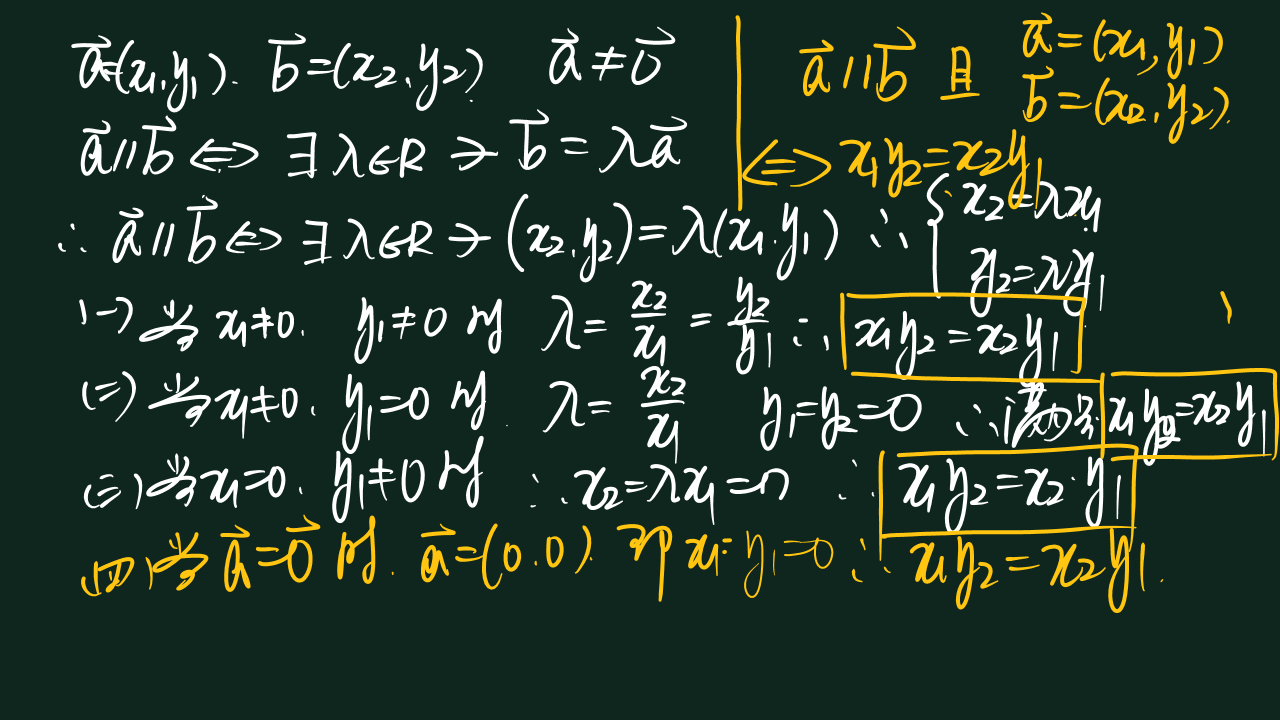 a⃗=(x₁,y₁). b⃗=(x₂,y₂) a⃗≠0⃗
a⃗//b⃗ ⇔ ∃λ∈R → b⃗=λa⃗
∴ a⃗//b⃗ ⇔ ∃λ∈R → (x₂,y₂)=λ(x₁.y₁) ∴ { x₂=λx₁
y₂=λy₁
(一) 当x₁≠0. y₁≠0时 λ=x₂/x₁=y₂/y₁ ∴ x₁y₂=x₂y₁
(二) 当x₁≠0. y₁=0时 λ=x₂/x₁ y₁=y₂=0 ∴满足 x₁y₂=x₂y₁
(三) 当x₁=0. y₁≠0时 ∴x₂=λx₁=0 ∴ x₁y₂=x₂·y₁
(四) 当a⃗=0⃗时. a⃗=(0.0). 即x₁=y₁=0 ∴ x₁y₂=x₂y₁.
a⃗//b⃗ 且 a⃗=(x₁,y₁)
b⃗=(x₂,y₂).
⇔ x₁y₂=x₂y₁